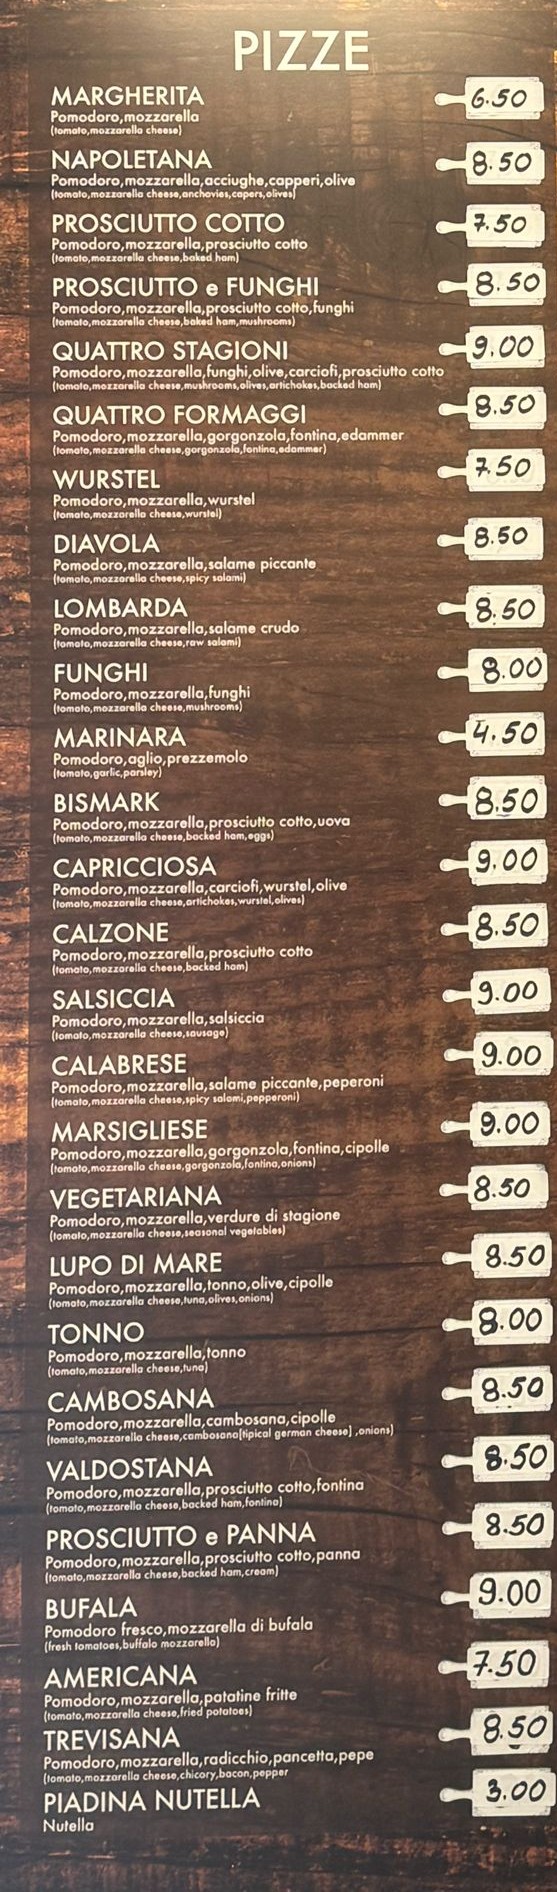 PIZZE
MARGHERITA 6.50
Pomodoro,mozzarella
(tomato,mozzarella cheese)
NAPOLETANA 8.50
Pomodoro,mozzarella,acciughe,capperi,olive
(tomato,mozzarella cheese,anchovies,capers,olives)
PROSCIUTTO COTTO 7.50
Pomodoro,mozzarella,prosciutto cotto
(tomato,mozzarella cheese,baked ham)
PROSCIUTTO e FUNGHI 8.50
Pomodoro,mozzarella,prosciutto cotto,funghi
(tomato,mozzarella cheese,baked ham,mushrooms)
QUATTRO STAGIONI 9.00
Pomodoro,mozzarella,funghi,olive,carciofi,prosciutto cotto
(tomato,mozzarella cheese,mushrooms,olives,artichokes,backed ham)
QUATTRO FORMAGGI 8.50
Pomodoro,mozzarella,gorgonzola,fontina,edammer
(tomato,mozzarella cheese,gorgonzola,fontina,edammer)
WURSTEL 7.50
Pomodoro,mozzarella,wurstel
(tomato,mozzarella cheese,wurstel)
DIAVOLA 8.50
Pomodoro,mozzarella,salame piccante
(tomato,mozzarella cheese,spicy salami)
LOMBARDA 8.50
Pomodoro,mozzarella,salame crudo
(tomato,mozzarella cheese,raw salami)
FUNGHI 8.00
Pomodoro,mozzarella,funghi
(tomato,mozzarella cheese,mushrooms)
MARINARA 4.50
Pomodoro,aglio,prezzemolo
(tomato,garlic,parsley)
BISMARK 8.50
Pomodoro,mozzarella,prosciutto cotto,uova
(tomato,mozzarella cheese,backed ham,eggs)
CAPRICCIOSA 9.00
Pomodoro,mozzarella,carciofi,wurstel,olive
(tomato,mozzarella cheese,artichokes,wurstel,olives)
CALZONE 8.50
Pomodoro,mozzarella,prosciutto cotto
(tomato,mozzarella cheese,backed ham)
SALSICCIA 9.00
Pomodoro,mozzarella,salsiccia
(tomato,mozzarella cheese,sausage)
CALABRESE 9.00
Pomodoro,mozzarella,salame piccante,peperoni
(tomato,mozzarella cheese,spicy salami,pepperoni)
MARSIGLIESE 9.00
Pomodoro,mozzarella,gorgonzola,fontina,cipolle
(tomato,mozzarella cheese,gorgonzola,fontina,onions)
VEGETARIANA 8.50
Pomodoro,mozzarella,verdure di stagione
(tomato,mozzarella cheese,seasonal vegetables)
LUPO DI MARE 8.50
Pomodoro,mozzarella,tonno,olive,cipolle
(tomato,mozzarella cheese,tuna,olives,onions)
TONNO 8.00
Pomodoro,mozzarella,tonno
(tomato,mozzarella cheese,tuna)
CAMBOSANA 8.50
Pomodoro,mozzarella,cambosana,cipolle
(tomato,mozzarella cheese,cambosana[tipical german cheese] ,onions)
VALDOSTANA 8.50
Pomodoro,mozzarella,prosciutto cotto,fontina
(tomato,mozzarella cheese,backed ham,fontina)
PROSCIUTTO e PANNA 8.50
Pomodoro,mozzarella,prosciutto cotto,panna
(tomato,mozzarella cheese,backed ham,cream)
BUFALA 9.00
Pomodoro fresco,mozzarella di bufala
(fresh tomatoes,buffalo mozzarella)
AMERICANA 7.50
Pomodoro,mozzarella,patatine fritte
(tomato,mozzarella cheese,fried potatoes)
TREVISANA 8.50
Pomodoro,mozzarella,radicchio,pancetta,pepe
(tomato,mozzarella cheese,chicory,bacon,pepper
PIADINA NUTELLA 3.00
Nutella